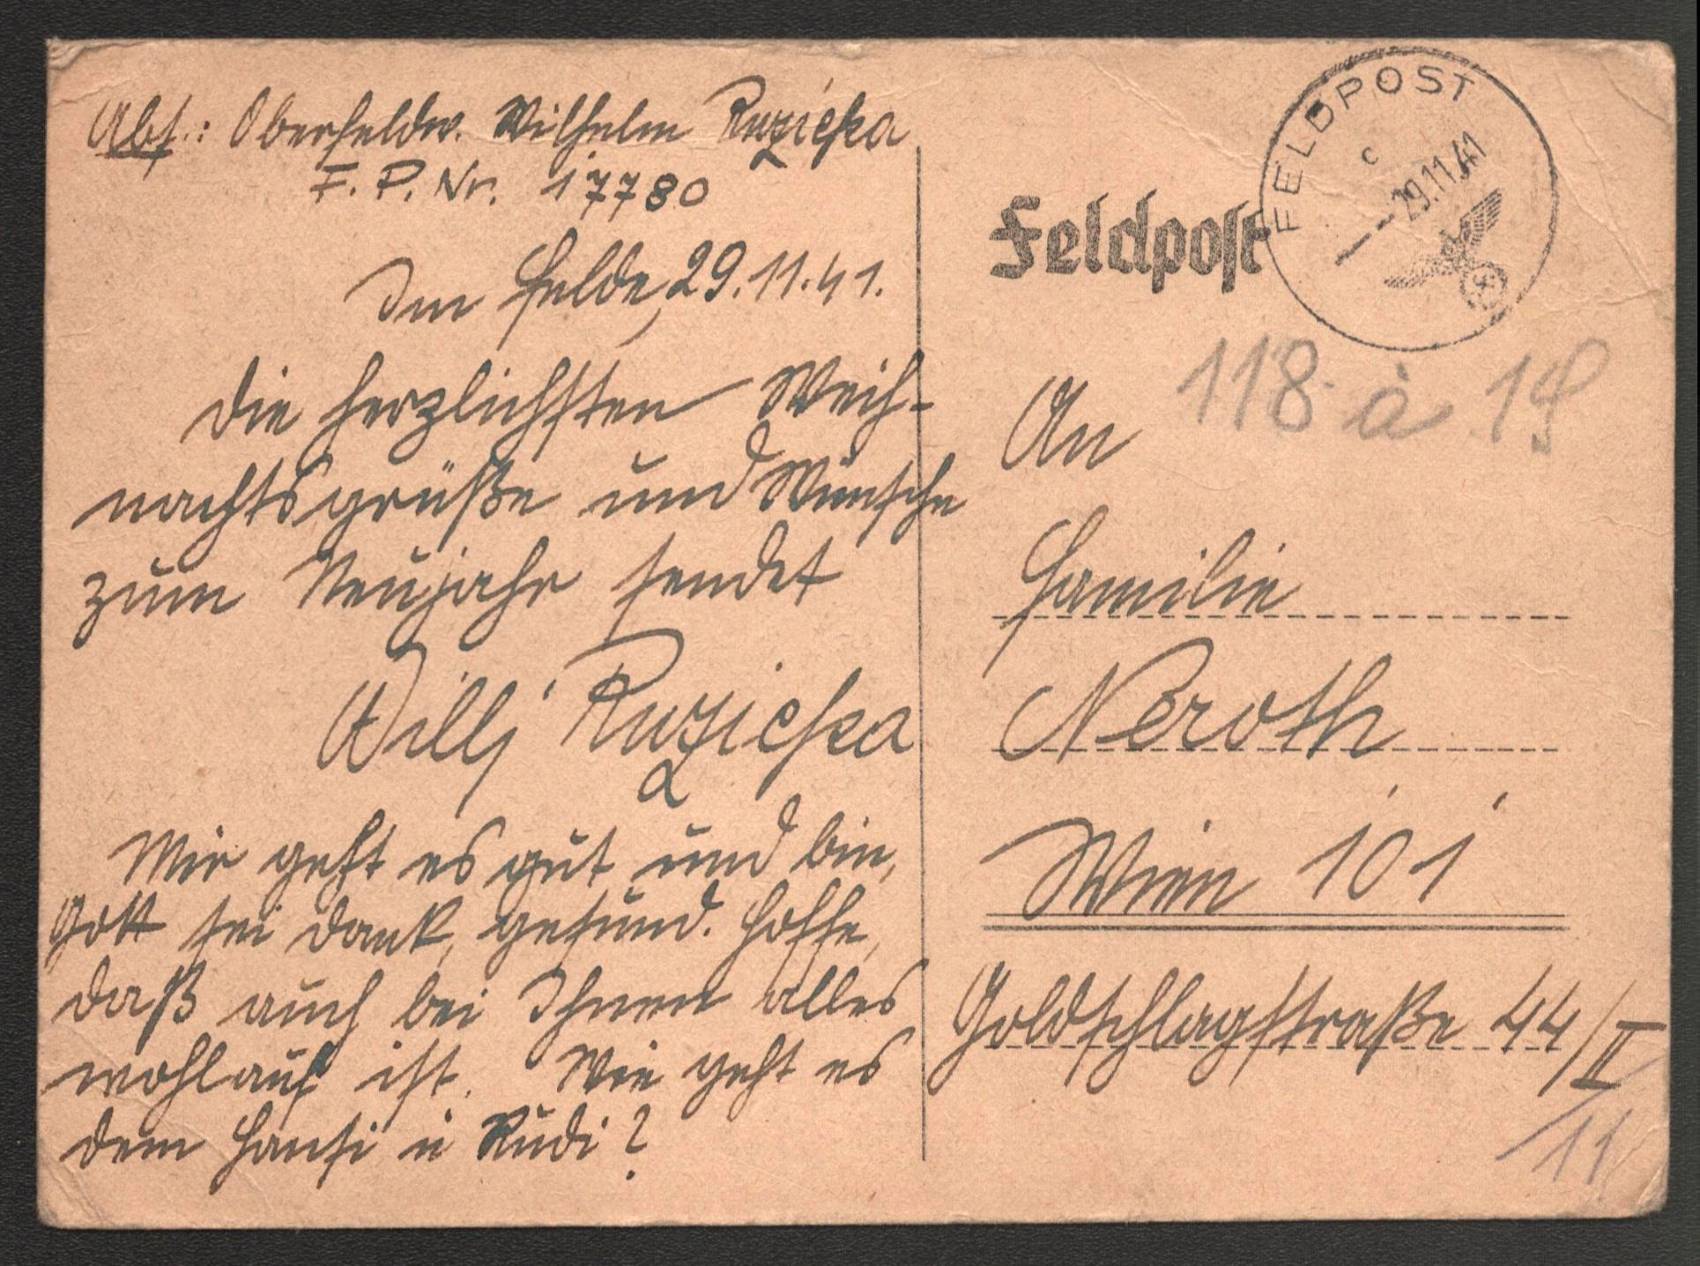 Abs.: Oberfeldw. Wilhelm Ruzicka
F. P. Nr. 17780
Im Felde, 29.11.41.
Die herzlichsten Weih-
nachtsgrüße und Wünsche
zum Neujahr sendet
Willj Ruzicka
Mir geht es gut und bin,
Gott sei Dank, gesund. Hoffe,
daß auch bei Ihnen alles
wohlauf ist. Wie geht es
dem Hansi u Rudi?
Feldpost
FELDPOST
c
29.11.41
118 à 15
An
Familie
Neroth
Wien 101
Goldschlagstraße 44/II
/11